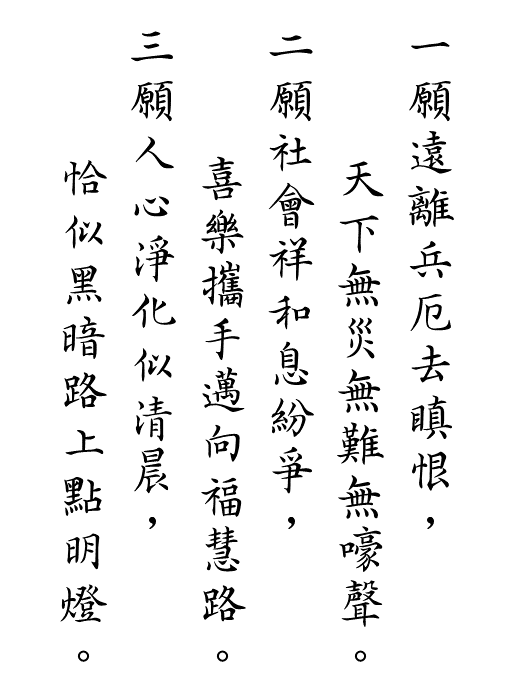 一願遠離兵厄去瞋恨，
天下無災無難無嚎聲。
二願社會祥和息紛爭，
喜樂攜手邁向福慧路。
三願人心淨化似清晨，
恰似黑暗路上點明燈。